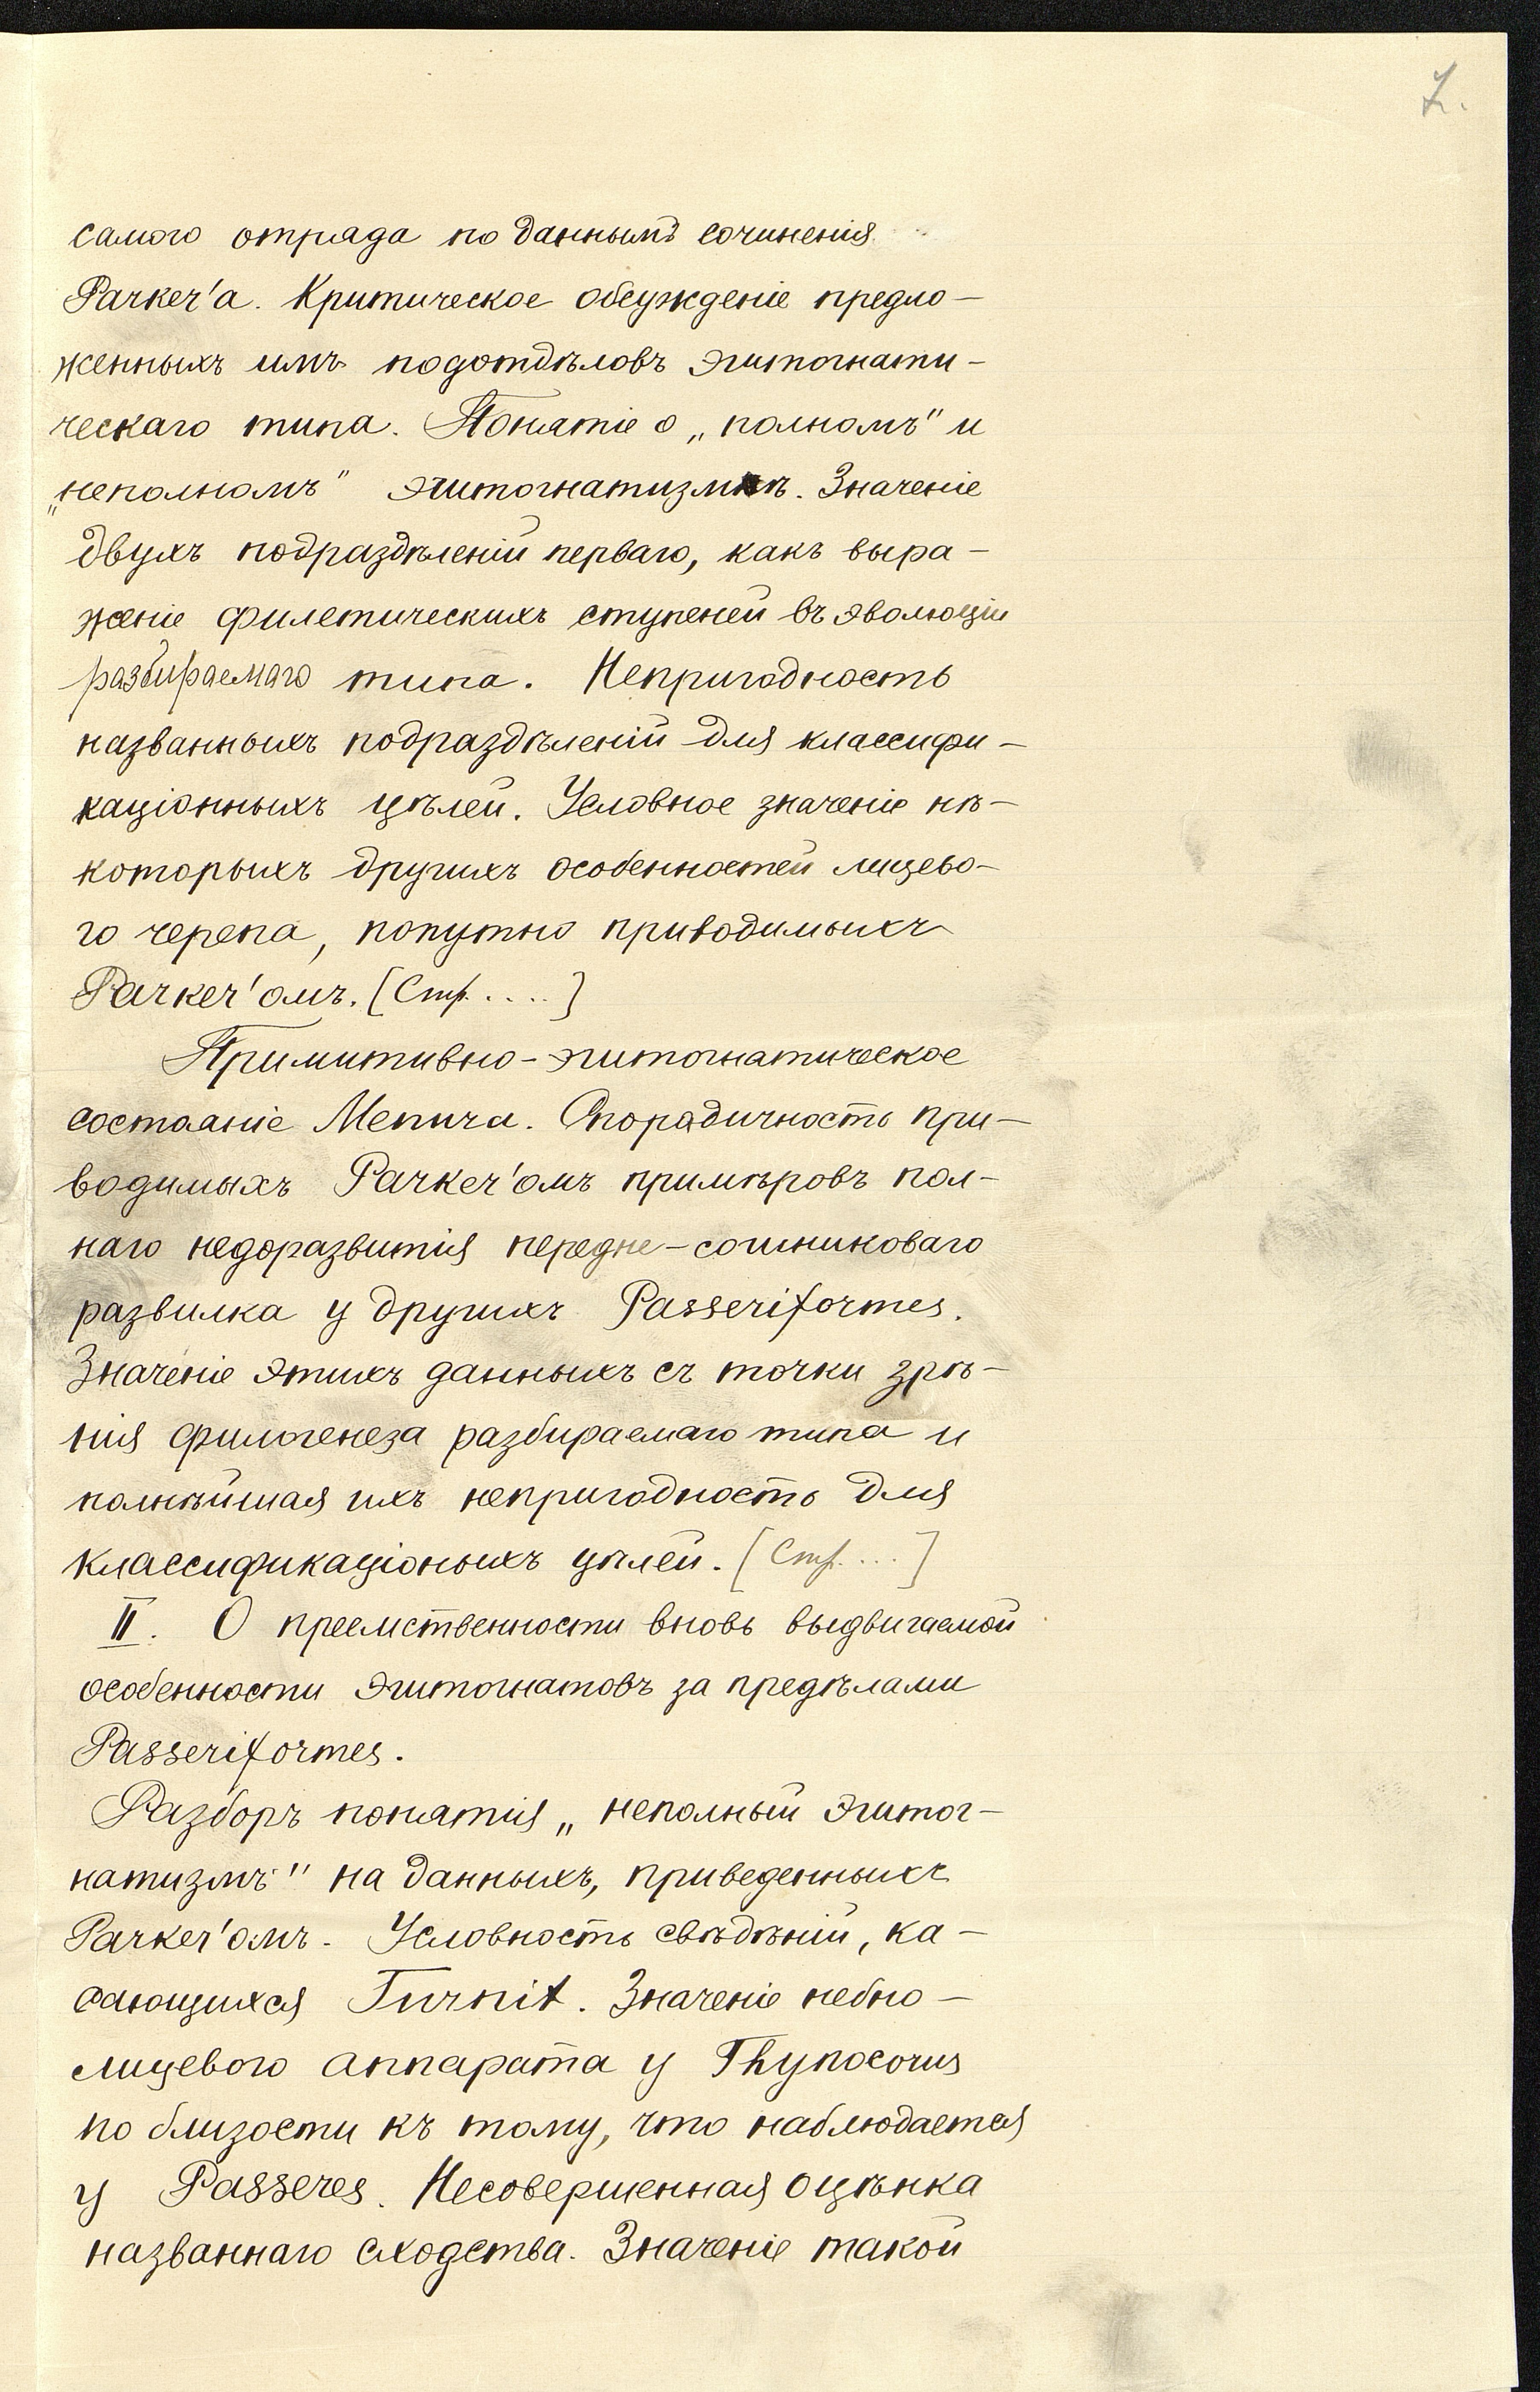 7.
самого отряда по даннымъ сочиненія
Parker'а. Критическое обсужденіе предло-
женныхъ имъ подотдѣловъ эгитогнати-
ческаго типа. Понятіе о „полномъ" и
„неполномъ" эгитогнатизмѣ. Значеніе
двухъ подраздѣленій перваго, какъ выра-
женіе филетическихъ ступеней въ эволюціи
разбираемаго типа. Непригодность
названныхъ подраздѣленій для классифи-
каціонныхъ цѣлей. Условное значеніе нѣ-
которыхъ другихъ особенностей лицево-
го черепа, попутно приводимыхъ
Parker'омъ. [Стр. ....]
Примитивно-эгитогнатическое
состояніе Menura. Спорадичность при-
водимыхъ Parker'омъ примѣровъ пол-
наго недоразвитія передне-сошниковаго
развилка у другихъ Passeriformes.
Значеніе этихъ данныхъ съ точки зрѣ-
нія филогенеза разбираемаго типа и
полнѣйшая ихъ непригодность для
классификаціоныхъ цѣлей. [Стр. ...]
II. О преемственности вновь выдвигаемой
особенности эгитогнатовъ за предѣлами
Passeriformes.
Разборъ понятія „неполный эгитог-
натизмъ" на данныхъ, приведенныхъ
Parker'омъ. Условность свѣдѣній, ка-
сающихся Turnix. Значеніе небно-
лицевого аппарата у Thynocorus
по близости къ тому, что наблюдается
у Passeres. Несовершенная оцѣнка
названнаго сходства. Значеніе такой